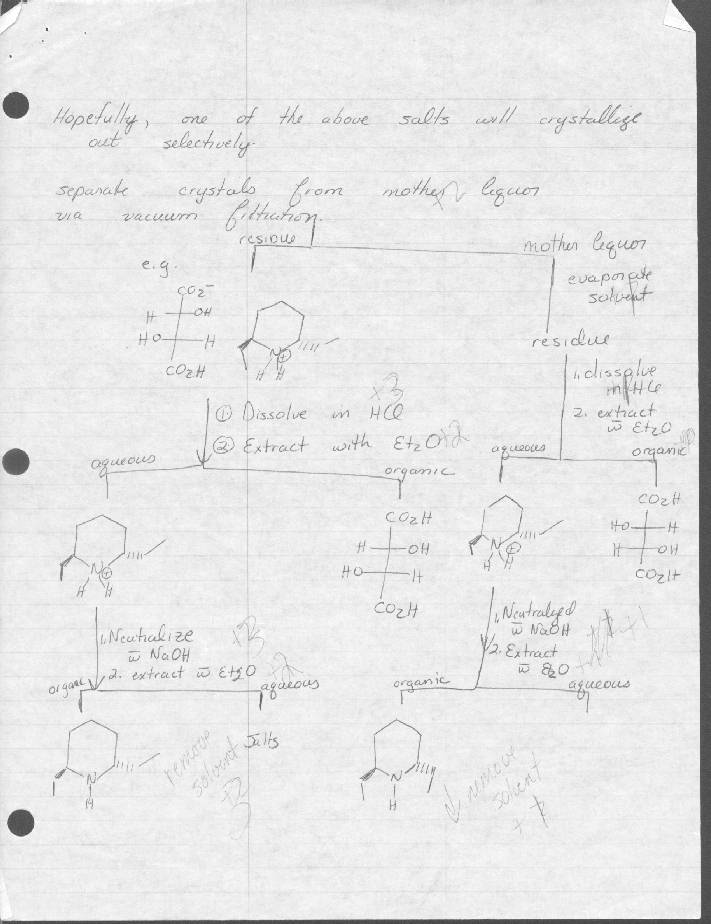 Hopefully, one of the above salts will crystallize
out selectively.
separate crystals from mother liquor
via vacuum filtration.
residue
mother liquor
e.g.
evaporate
solvent
CO2-
H OH
HO H
CO2H
N
⊕
H H
residue
1. dissolve
in HCl
2. extract
w̄ Et2O
① Dissolve in HCl
+3
② Extract with Et2O
+2
aqueous
organic
aqueous
organic
N
⊕
H H
CO2H
H OH
HO H
CO2H
N
⊕
H H
CO2H
HO H
H OH
CO2H
1. Neutralize
w̄ NaOH
+3
2. extract w̄ Et2O
+2
1. Neutralized
w̄ NaOH
+1
2. Extract
w̄ Et2O
organic
aqueous
organic
aqueous
N
H
remove
solvent
+2
Salts
N
H
remove
solvent